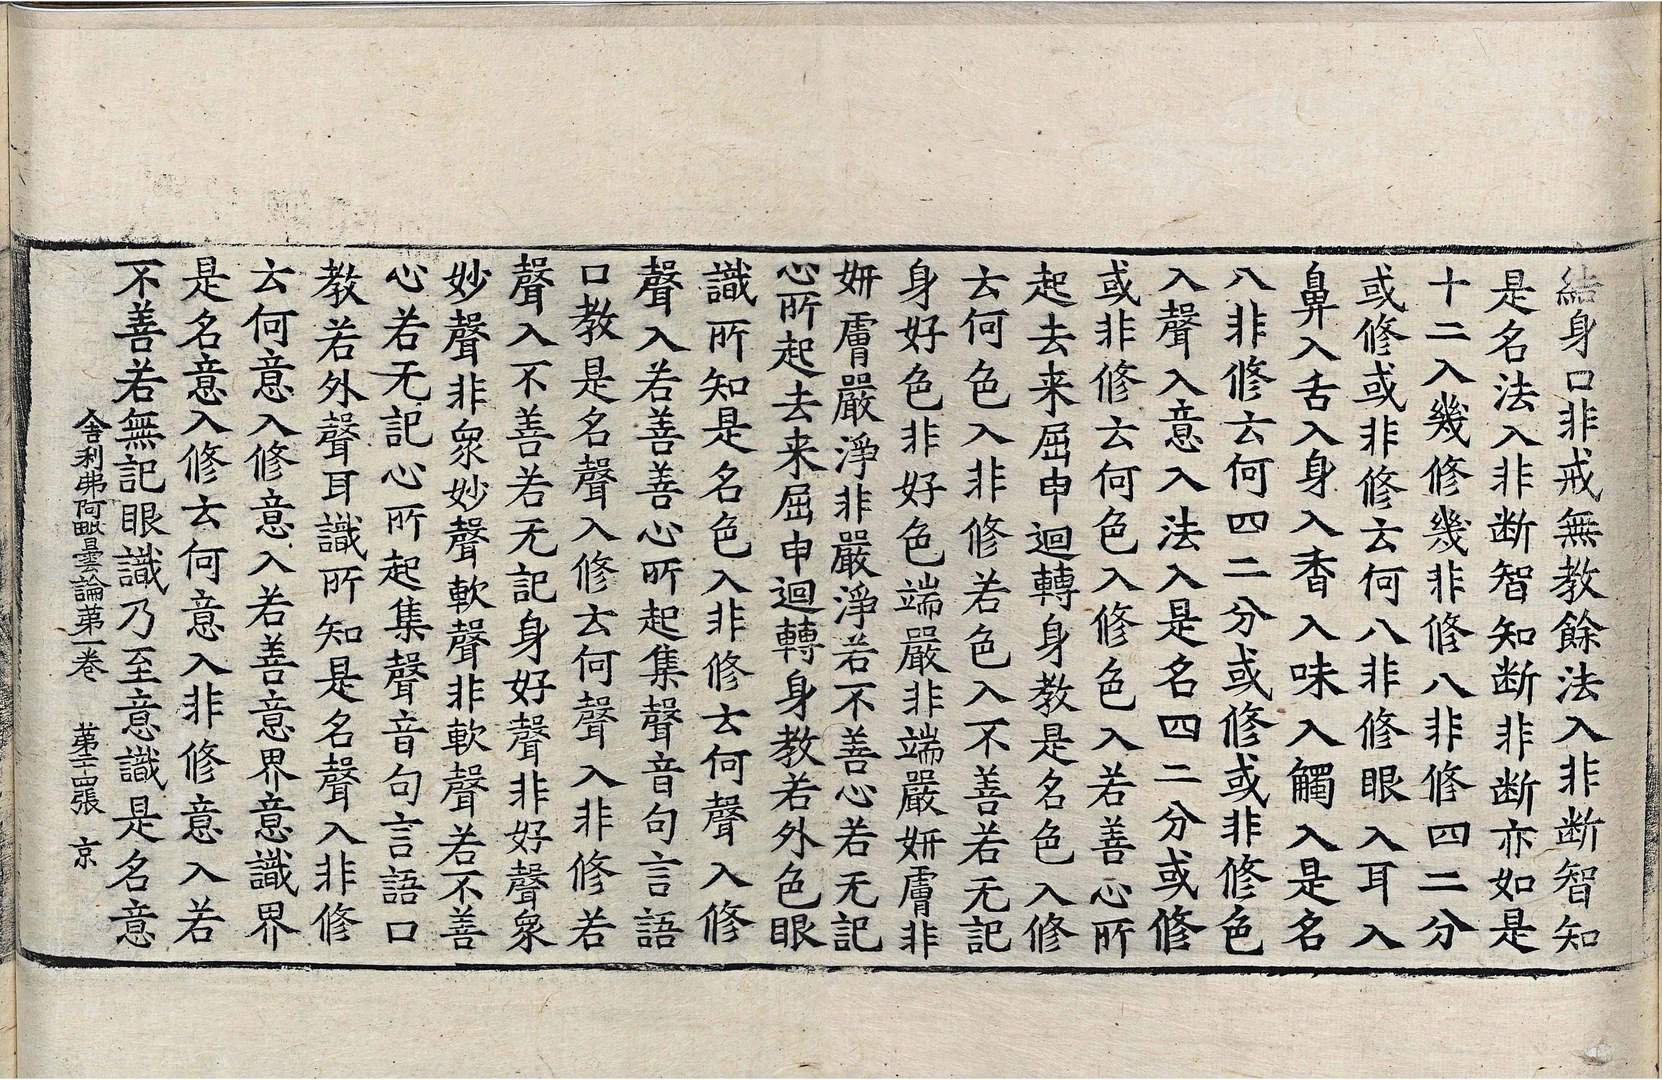 結身口非戒無教餘法入非断智知
是名法入非断智知断非断亦如是
十二入幾修幾非修八非修四二分
或修或非修云何八非修眼入耳入
鼻入舌入身入香入味入觸入是名
八非修云何四二分或修或非修色
入聲入意入法入是名四二分或修
或非修云何色入修色入若善心所
起去来屈申迴轉身教是名色入修
云何色入非修若色入不善若无記
身好色非好色端嚴非端嚴妍膚非
妍膚嚴淨非嚴淨若不善心若无記
心所起去来屈申迴轉身教若外色眼
識所知是名色入非修云何聲入修
聲入若善善心所起集聲音句言語
口教是名聲入修云何聲入非修若
聲入不善若无記身好聲非好聲衆
妙聲非衆妙聲軟聲非軟聲若不善
心若无記心所起集聲音句言語口
教若外聲耳識所知是名聲入非修
云何意入修意入若善意界意識界
是名意入修云何意入非修意入若
不善若無記眼識乃至意識是名意
舍利弗阿毗曇論第一卷 第二十四張 京